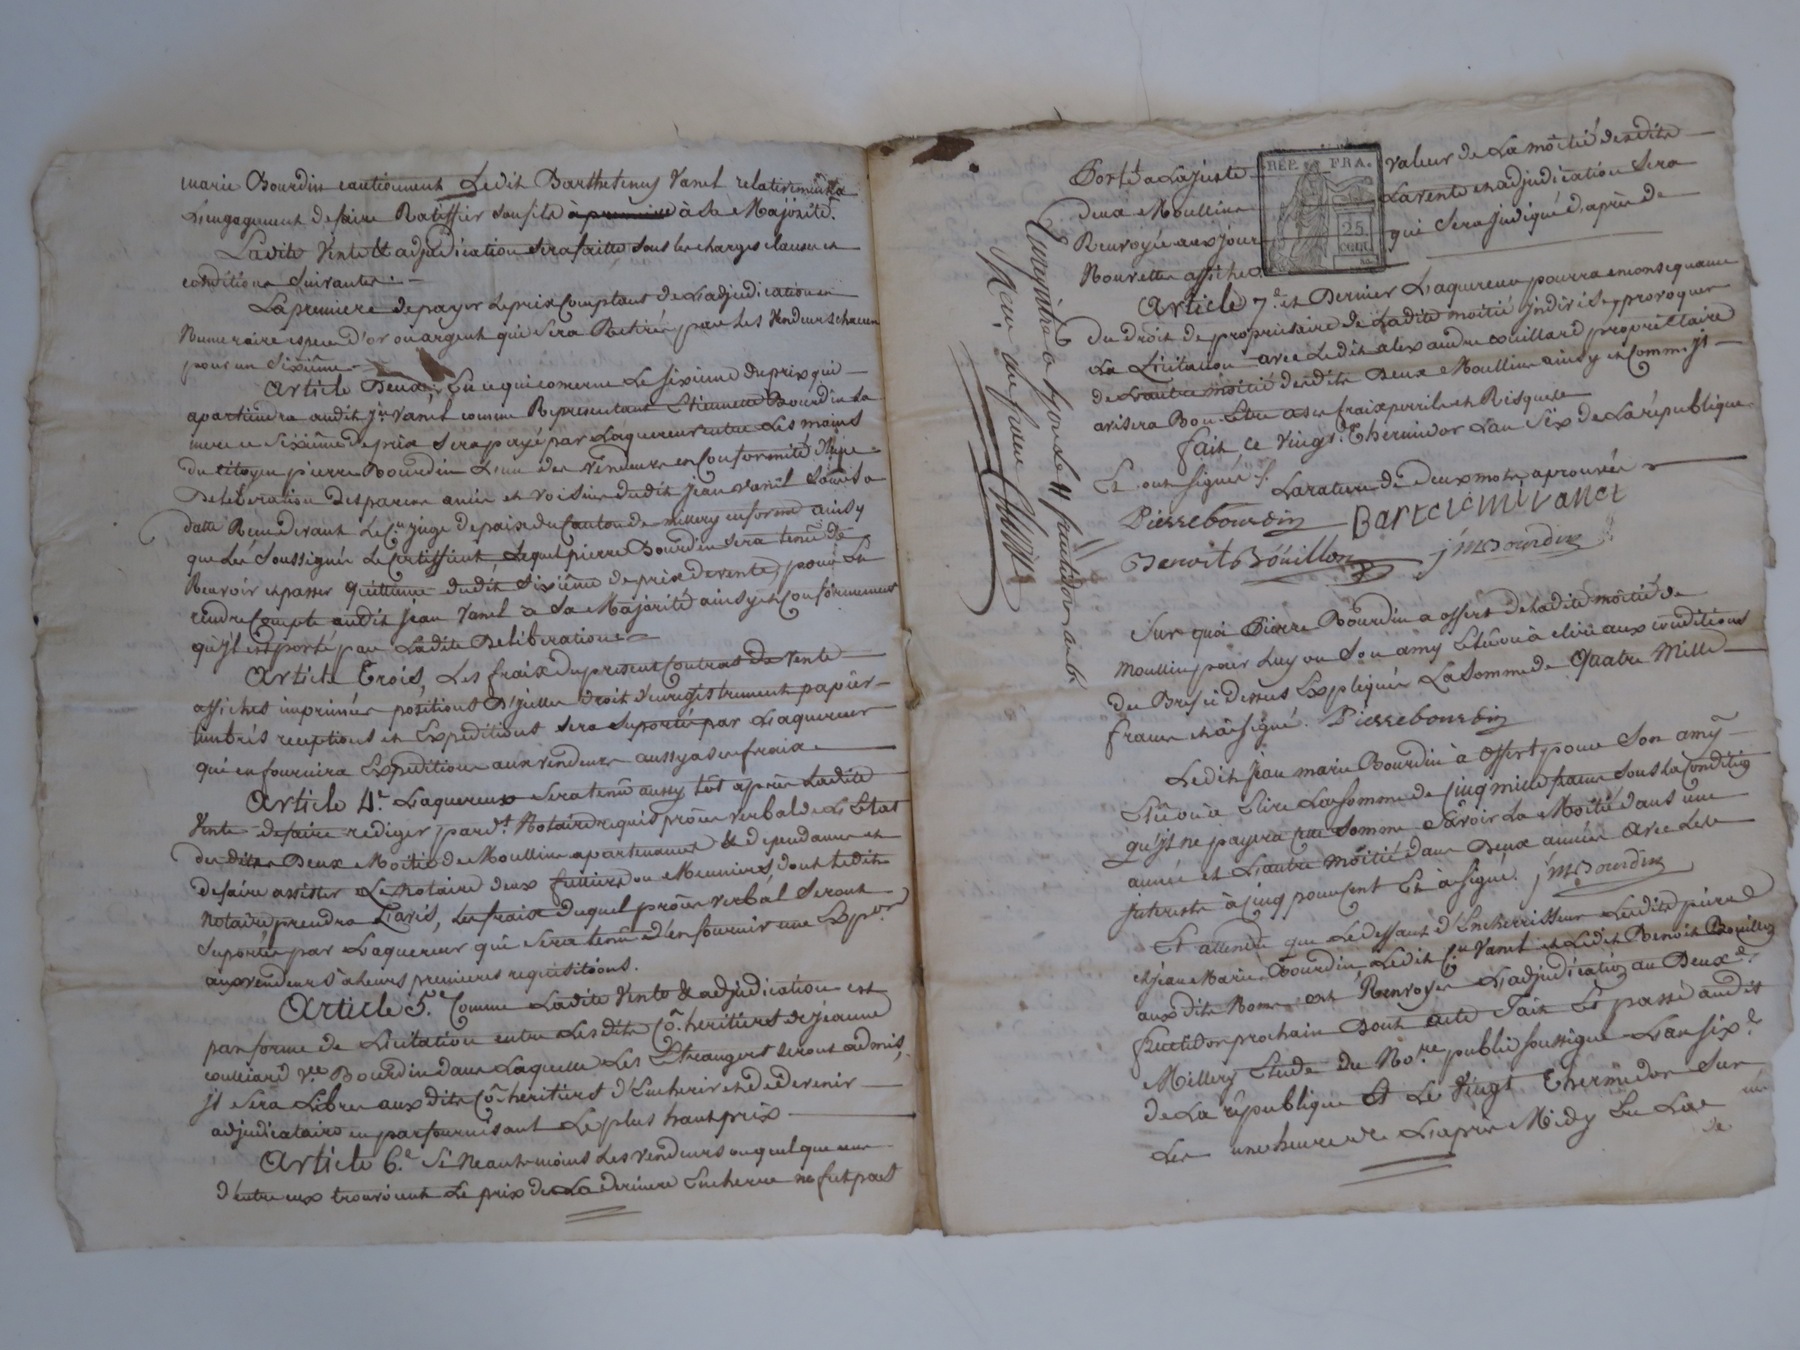 marie Bourdin cautionnent Ledit Barthelemy Vanel relativement a
L'engagement de faire Ratiffier son fils à sa Majorité.
Ladite Vente & adjudication sera faitte sous les charges clauses et
conditions Suivantes.
La premiere de payer Le prix Comptant de L'adjudication en
Numeraire espece d'or ou argent qui sera Retiré par Les Vendeurs chacun
pour un Sixiême.
Article Deux, En ce qui concerne Le sixiême du prix qui
apartiendra audit Jn Vanel comme Representant Etiennette Bourdin sa
mere ce sixiême de prix sera payé par L'aquereur entre Les mains
du Citoyen pierre Bourdin L'un des vendeurs en Conformité d'une
Deliberation des parens amis et voisins dudit Jean Vanel
datte Recue devant Le Cn juge de paix du Canton de Millery en forme ainsy
que Les Soussignés Le Certiffient, Lequel pierre Bourdin sera tenû de
Recevoir et passer quittance dudit Sixiême de prix de vente, pour En
rendre Compte audit Jean Vanel à sa Majorité ainsy et Conformement
qu'yl est porté par Ladite Deliberation
Article Trois, Les fraix du present Contrat de Vente
affiches imprimées positions d'ycelles Droit d'enregistrement papier
timbrés receptions et Expeditions sera suporté par L'aquereur
qui en fournira Expedition aux vendeurs aussy a ses fraix
Article 4e. L'aquereur sera tenû aussy tôt après Ladite
Vente de faire rediger par Notaire requis procês verbal de L'Etat
des dites Deux Moitiés de Moullins apartenances & dependances et
de faire assister Le Notaire deux ou Meuniers, dont Ledit
Notaire prendra L'avis, Les fraix duquel procês verbal seront
suportés par L'aquereur qui sera tenû d'en fournir une Expon
aux vendeurs à leurs premieres requisitions.
Article 5e. Comme Ladite Vente & adjudication est
par forme de Licitation entre Lesdits Cô-heritiers de Jeanne
couilard Vve Bourdin dans Laquelle Les Etrangers seront admis,
jl sera Libre aux dits Cô-heritiers d'Encherir et de devenir
adjudicataire en parfournissant Le plus haut prix
Article 6e. Si Neantmoins Les Vendeurs ou quelques uns
d'entre eux trouvoient Le prix de La derniere Enchere ne fut pas
Porté a La juste valeur de La moitié desdits
deux Moullins La vente et adjudication sera
Renvoyée aux jour qui sera judiqué d'après de
Nouvelles affiches
REP. FRA.
25
cent.
Enregistré a Lyon Le 4 fructidor an 6
Recu un franc
Article 7e. et Dernier L'aquereur pourra en consequance
du droit de proprietaire de Ladite moitié Jndivise, provoquer
La Licitation avec Ledit alexandre couillard proprietaire
de L'autre moitié desdits Deux Moullins ainsy et Comme jl
avisera Bon Être a ses fraix perrils et Risques
fait ce Vingt Thermidor L'an Six de La république
Et ont signés. La rature de deux mots aprouvée
Pierre bourdin Bartelemi vanel
Benoit Bouillon jM Bourdin
Sur quoi Pierre Bourdin a offert de Ladite moitié de
Moullins pour Luy ou Son amy Elû ou à elire aux conditions
du Bref ci dessus Expliqués La somme de Quatre Mille
francs et à signé. Pierre bourdin
Ledit Jean marie Bourdin à offert pour Son amy
Elû ou à Elire La somme de Cinq mille francs sous la condition
qu'yl ne payera Savoir La Moitié dans une
année et L'autre môitié dans Deux années avec Les
jnterests à cinq pour cent Et à signé. jM Bourdin
Et attendû que Le deffaut d'Encherisseur Lesdits pierre
et Jean Marie Bourdin Ledit Cn Vanel et Ledit Benoit Bouillon
auxdits Noms ont Renvoyés L'adjudication au Deux
fructidor prochain Dont acte Fait Et passé audit
Millery Etude du Nore. public soussigné L'an six e
de La république & Le Vingt Thermidor sur
Les une heure de L'après Midy